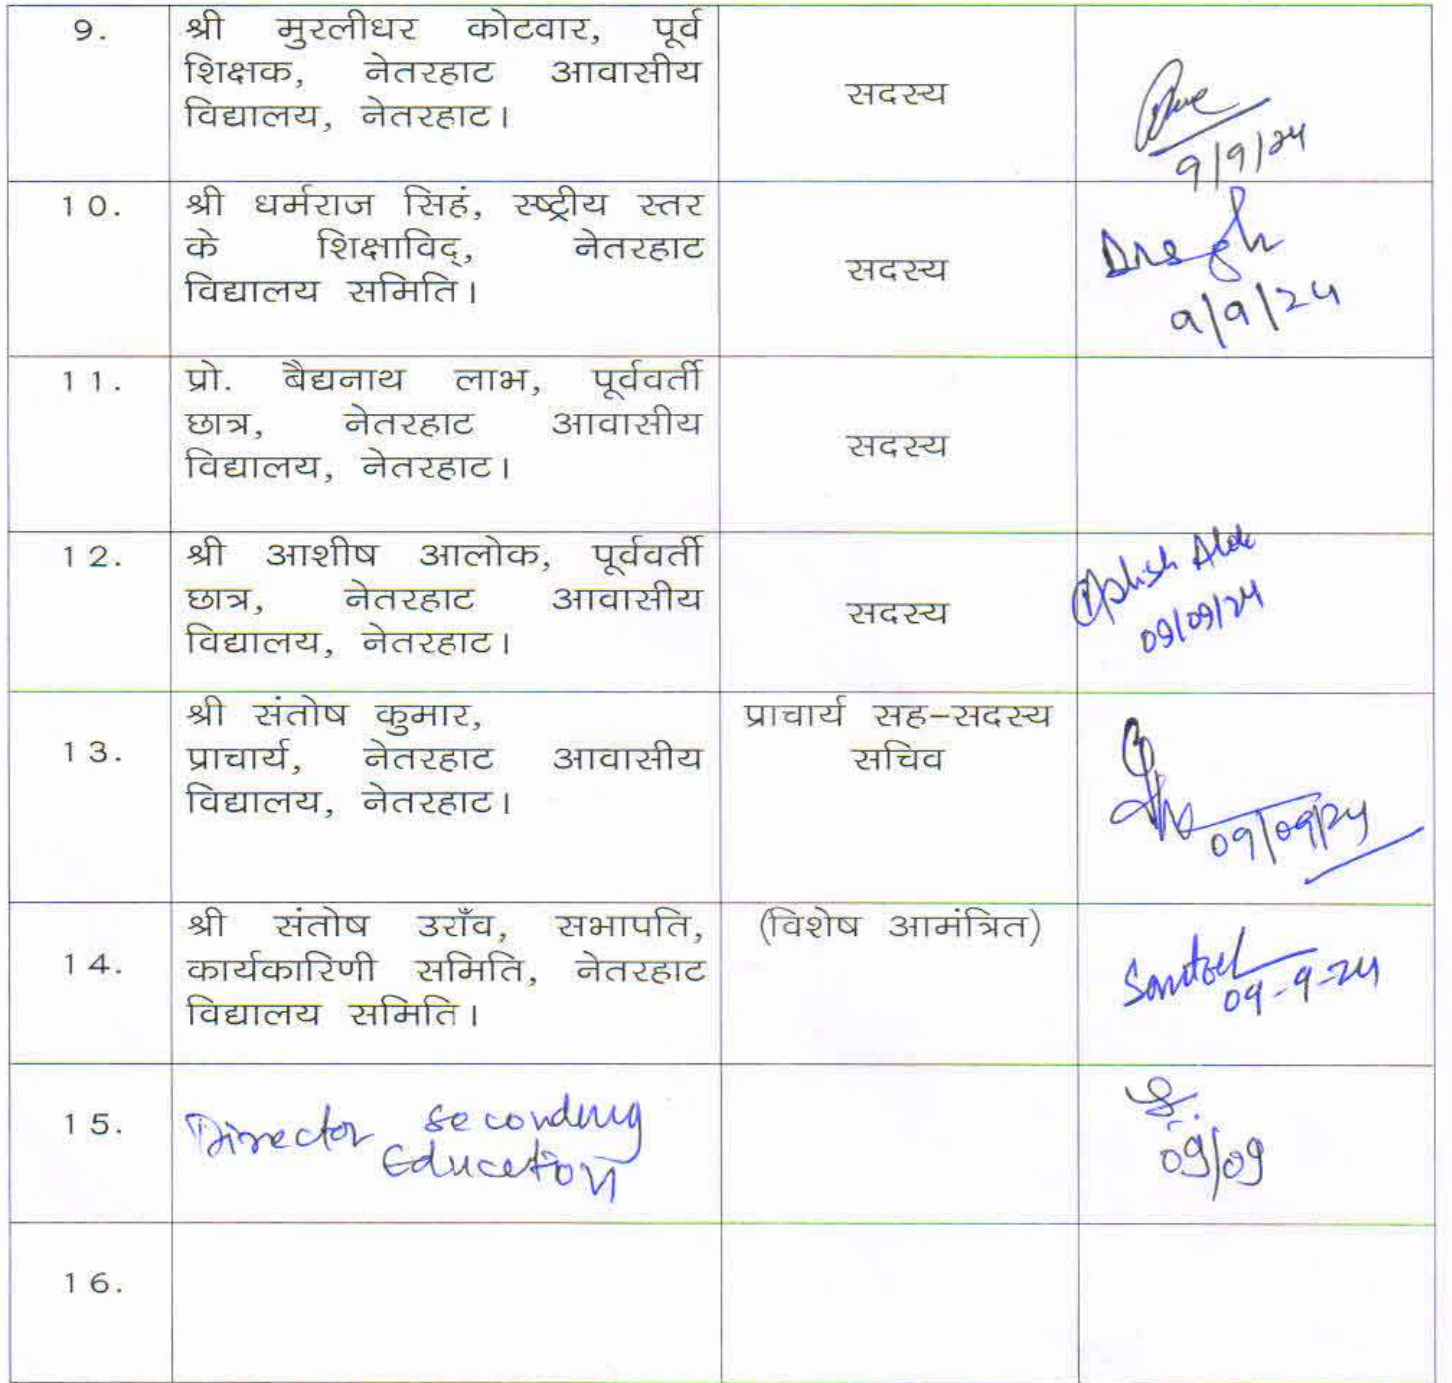 9.
श्री मुरलीधर कोटवार, पूर्व
शिक्षक, नेतरहाट आवासीय
विद्यालय, नेतरहाट।
सदस्य
9/9/24
10.
श्री धर्मराज सिहं, स्ष्ट्रीय स्तर
के शिक्षाविद्, नेतरहाट
विद्यालय समिति।
सदस्य
9/9/24
11.
प्रो. बैद्यनाथ लाभ, पूर्ववर्ती
छात्र, नेतरहाट आवासीय
विद्यालय, नेतरहाट।
सदस्य
12.
श्री आशीष आलोक, पूर्ववर्ती
छात्र, नेतरहाट आवासीय
विद्यालय, नेतरहाट।
सदस्य
Ashish
09/09/24
13.
श्री संतोष कुमार,
प्राचार्य, नेतरहाट आवासीय
विद्यालय, नेतरहाट।
प्राचार्य सह-सदस्य
सचिव
09/09/24
14.
श्री संतोष उराँव, सभापति,
कार्यकारिणी समिति, नेतरहाट
विद्यालय समिति।
(विशेष आमंत्रित)
09-9-24
15.
Director Secondary
Education
09/09
16.